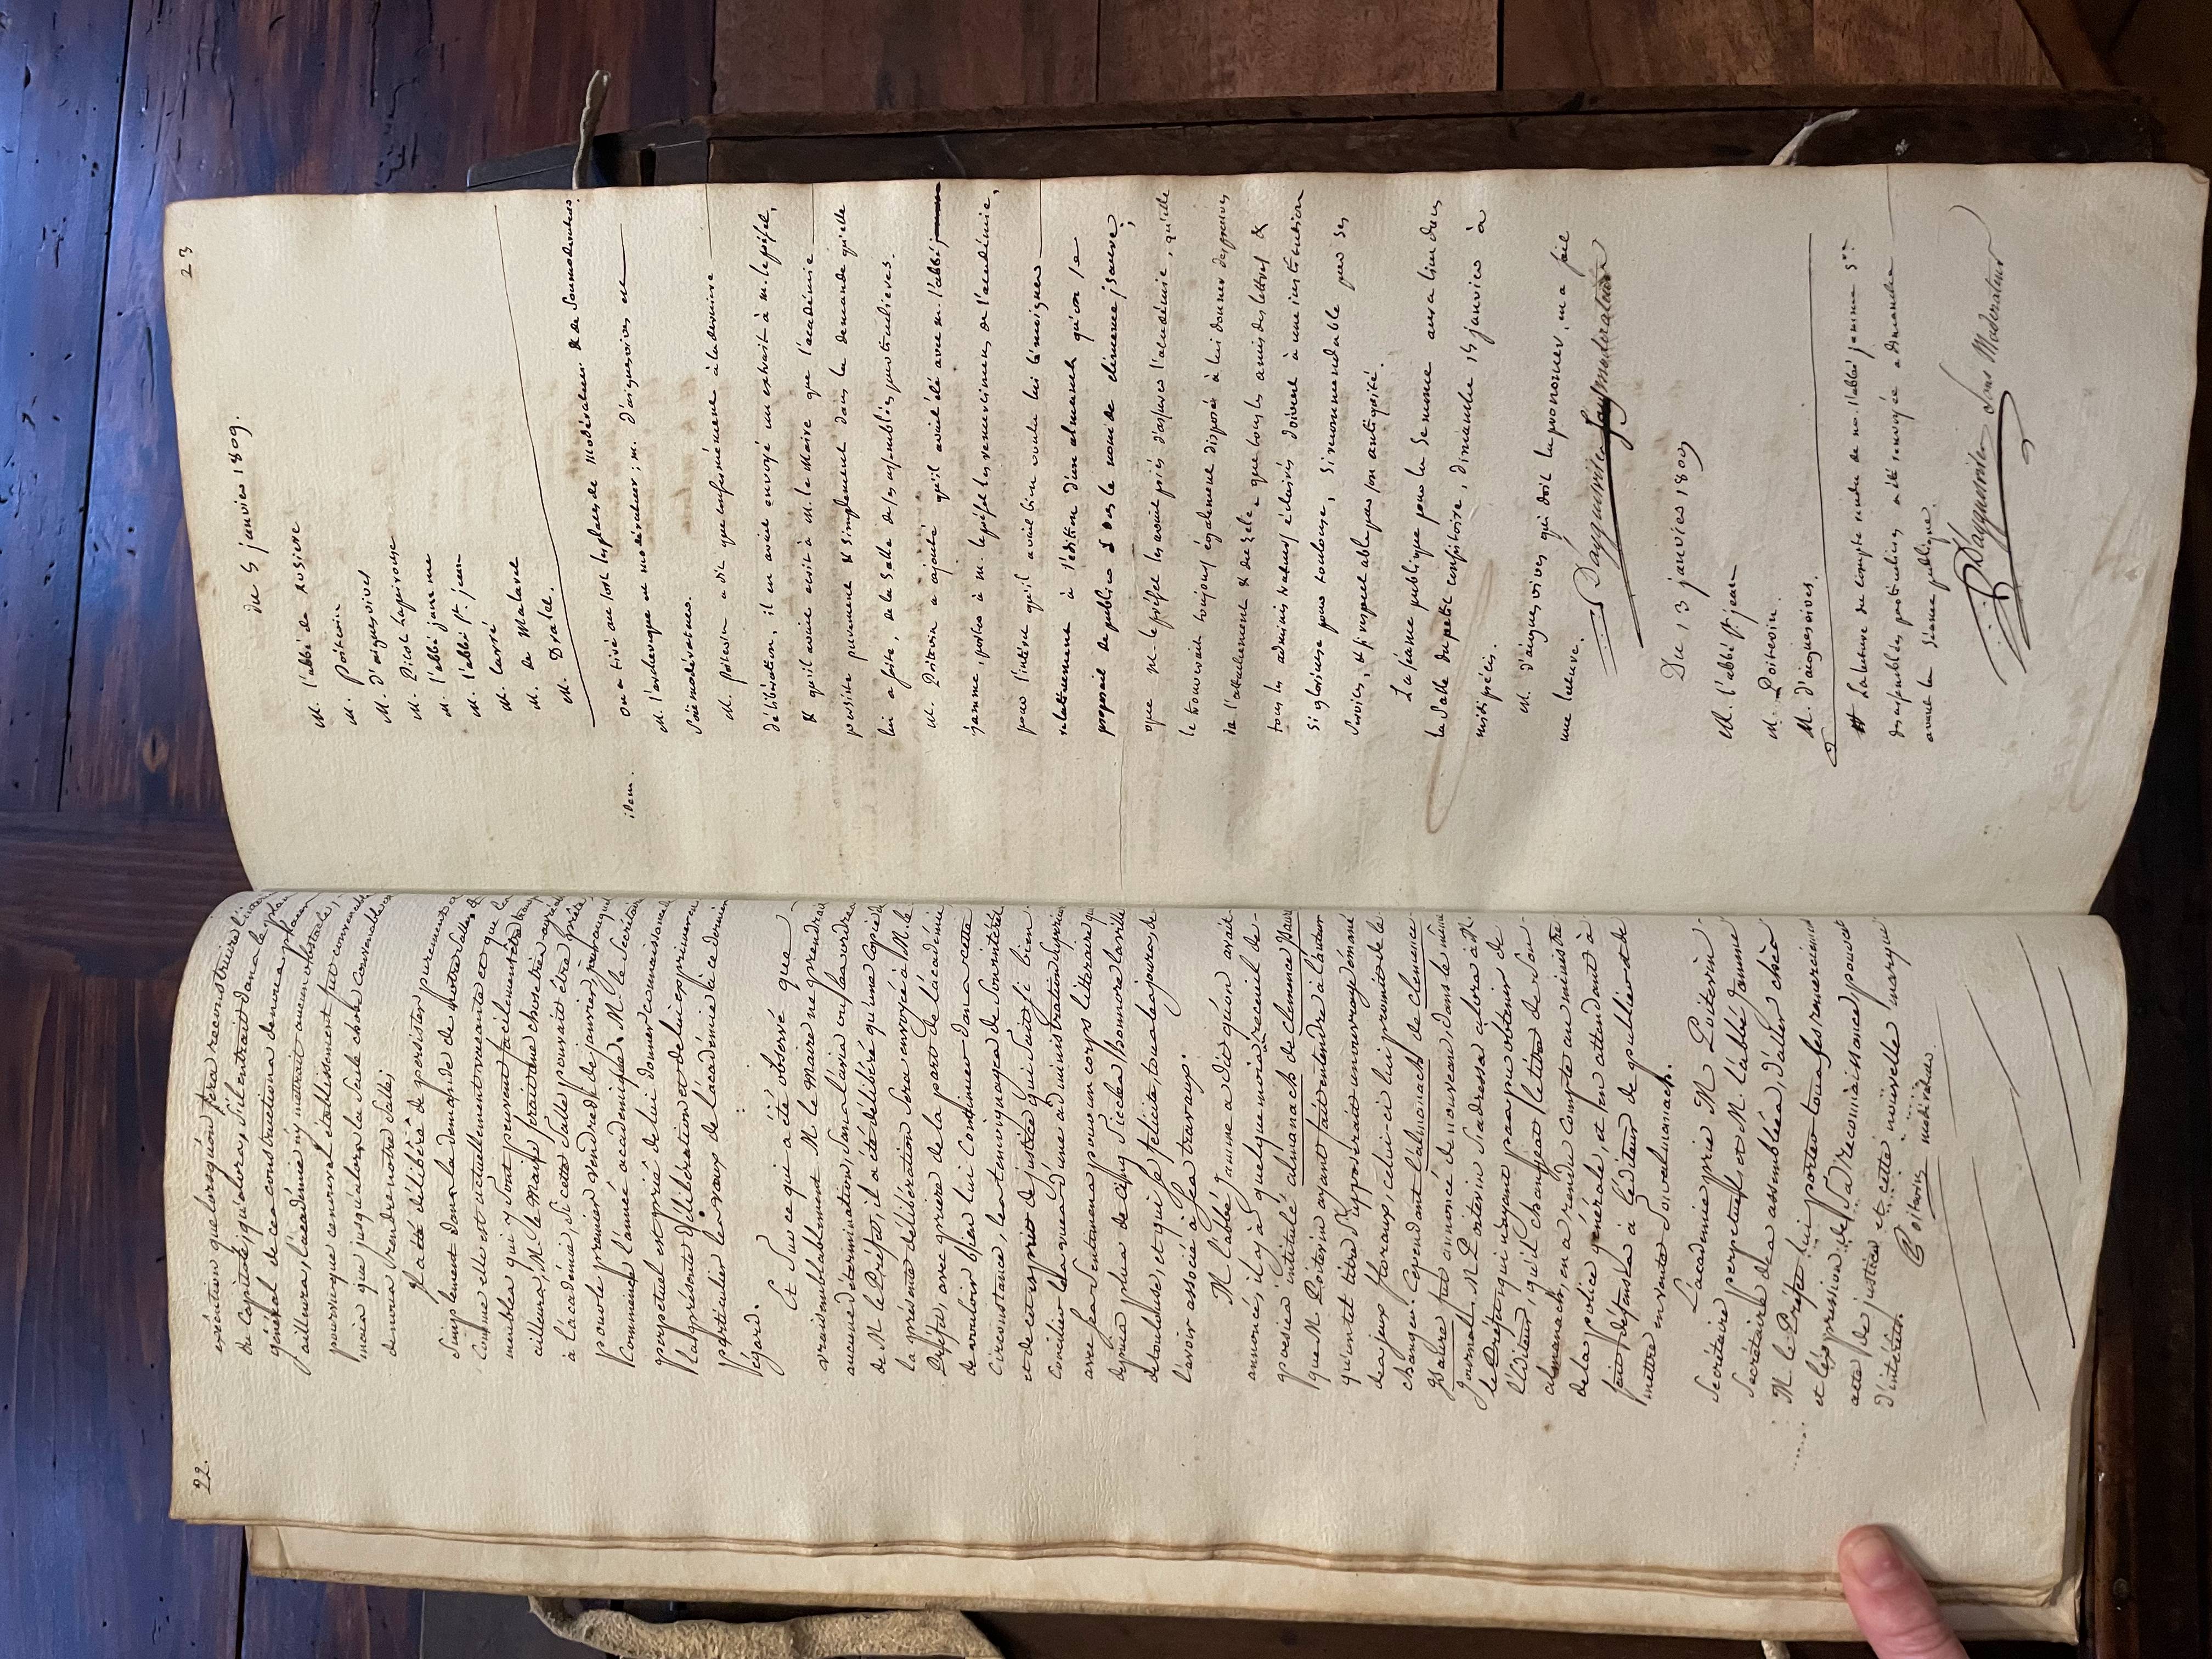 22.
exécution que lorsqu'on fera reconstruire
du Capitole, qu'alors, s'il entrait dans le plan
général de ces constructions de nous placer
ailleurs, l'académie n'y mettrait aucun obstacle,
pourvu que ce nouvel établissement fut convenable
mais que jusqu'alors la seule chose convenable
de nous rendre notre salle;
Il a été délibéré de persister purement &
simplement dans la demande de notre salle,
comme elle est actuellement vacante et que les
meubles qui y sont peuvent facilement être
ailleurs, M. le Maire ferait une chose très agréable
à l'académie, si cette salle pouvait être prête
pour le premier vendredi de janvier, jour auquel
commence l'année académique. M. le Secrétaire
perpétuel est prié de lui donner connaissance
la présente délibération et de lui exprimer en
particulier les vœux de l'académie à ce dernier
égard.
Et sur ce qui a été observé que
vraisemblablement M. le Maire ne prendrait
aucune détermination, sans l'avis ou les ordres
de M. le Préfet, il a été délibéré qu'une copie de
la présente délibération sera envoyée à M. le
Préfet, avec prière de la part de l'académie
de vouloir bien lui continuer dans cette
circonstance, les témoignages de son intérêt
et de cet esprit de justice qui sait si bien
concilier les vues d'une administration supérieure
avec les sentiments pour un corps littéraire qui
depuis plus de cinq siècles honore la ville
de toulouse, et qui se félicite, tous les jours, de
l'avoir associé à ses travaux.
M. l'abbé jamme a dit qu'on avait
annoncé, il y a quelques mois un recueil de
poesies intitulé almanach de clemence Isaure
que M. Poitevin ayant fait entendre à l'auteur
qu'un tel titre supposerait un ouvrage émané
des jeux floraux, celui-ci lui promit de le
changer. Cependant l'almanach de clemence
Isaure fut annoncé de nouveau, dans le même
Journal. M. Poitevin s'adressa alors à M.
le Préfet, qui n'ayant pas pu obtenir de
l'éditeur, qu'il changeat le titre de son
almanach, en a rendu compte au ministre
de la police générale, et a en attendant à
fait défenses à l'éditeur de publier et de
mettre en vente son almanach.
L'académie prie M. Poitevin
Secrétaire perpétuel, et M. l'abbé Jamme
Secrétaire des assemblées, d'aller chès
M. le Préfet lui porter tous ses remerciemens
et l'expression de sa reconnaissance, pour cet
acte de justice et cette nouvelle marque
d'intérêt.
Poitevin modérateur
23
du 5 janvier 1809.
M. l'abbé de Rosiere
M. Poitevin
M. D'aiguesvives
M. Picot Lapeirouse
M. l'abbé jamme
M. l'abbé St. jean
M. Carré
M. de Malaret
M. Dralet.
idem.
on a tiré au sort les places de Modérateur & de Sousmodérateur.
M. l'archeveque est modérateur; M. d'aiguesvives est
Sousmodérateur.
M. Poitevin a dit que conformément à la derniere
délibération, il en avait envoyé un extrait à M. le préfet,
& qu'il avait écrit à M. le Maire que l'académie
persiste purement & simplement dans la demande qu'elle
lui a faite, de la Salle de ses assemblées particulieres.
M. Poitevin a ajouté qu'il avait été avec M. l'abbé
jamme, porter à M. le préfet les remerciemens de l'académie,
pour l'intérêt qu'il avait bien voulu lui témoigner
relativement à l'édition d'un almanach qu'on se
proposait de publier sous le nom de clémence jsaure;
que M. le préfet les avait priés d'assurer l'académie, qu'elle
le trouverait toujours également disposé à lui donner des preuves
de l'attachement & du zele, que tous les amis des lettres &
tous les administrateurs éclairés doivent à une institution
si glorieuse pour toulouse, si recommandable par ses
services, & si respectable par son antiquité.
La séance publique pour la Semonce aura lieu dans
la Salle du petit consistoire, dimanche 15 janvier à
midi précis.
M. d'aiguesvives qui doit la prononcer, en a fait
une lecture.
D'aiguesvives Sousmoderateur
Du 13 janvier 1809
M. l'abbé St. jean
M. Poitevin.
M. d'aiguesvives.
La lecture du compte rendu de M. l'abbé jamme Sre.
des assemblées particulieres a été renvoyée a dimanche
avant la séance publique.
D'aiguesvives Sous Moderateur